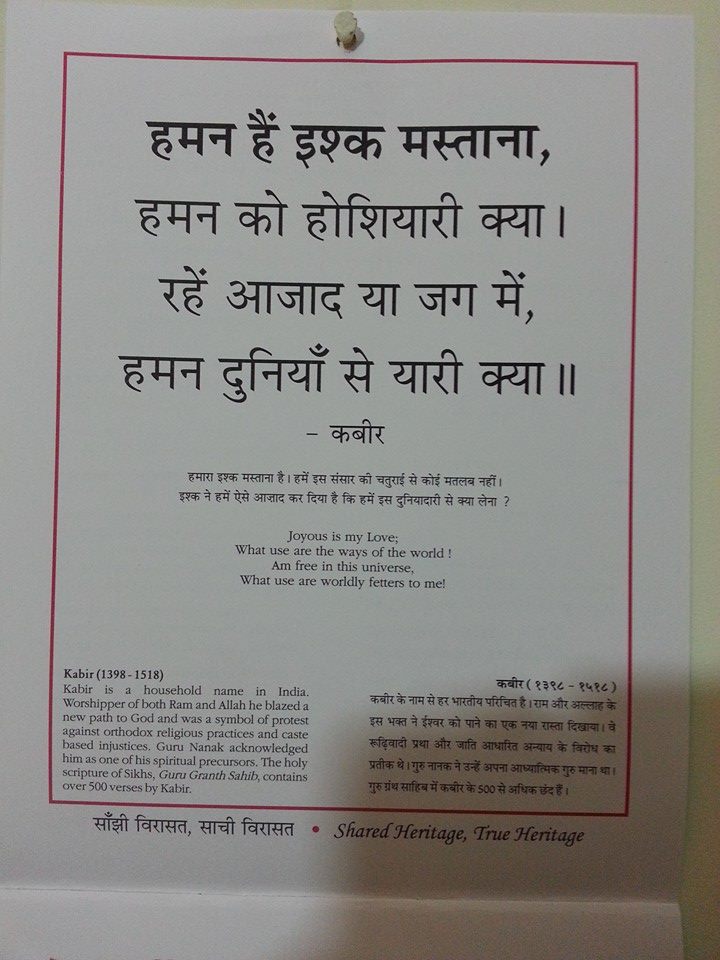 हमन हैं इश्क मस्ताना,
हमन को होशियारी क्या।
रहें आजाद या जग में,
हमन दुनियाँ से यारी क्या॥
– कबीर
हमारा इश्क मस्ताना है। हमें इस संसार की चतुराई से कोई मतलब नहीं।
इश्क ने हमें ऐसे आज़ाद कर दिया है कि हमें इस दुनियादारी से क्या लेना ?
Joyous is my Love;
What use are the ways of the world !
Am free in this universe,
What use are worldly fetters to me!
Kabir (1398 - 1518)
Kabir is a household name in India.
Worshipper of both Ram and Allah he blazed a
new path to God and was a symbol of protest
against orthodox religious practices and caste
based injustices. Guru Nanak acknowledged
him as one of his spiritual precursors. The holy
scripture of Sikhs, Guru Granth Sahib, contains
over 500 verses by Kabir.
कबीर ( १३९८ - १५१८ )
कबीर के नाम से हर भारतीय परिचित है। राम और अल्लाह के
इस भक्त ने ईश्वर को पाने का एक नया रास्ता दिखाया। वे
रूढ़िवादी प्रथा और जाति आधारित अन्याय के विरोध का
प्रतीक थे। गुरु नानक ने उन्हें अपना आध्यात्मिक गुरु माना था।
गुरु ग्रंथ साहिब में कबीर के 500 से अधिक छंद हैं।
साँझी विरासत, साची विरासत • Shared Heritage, True Heritage